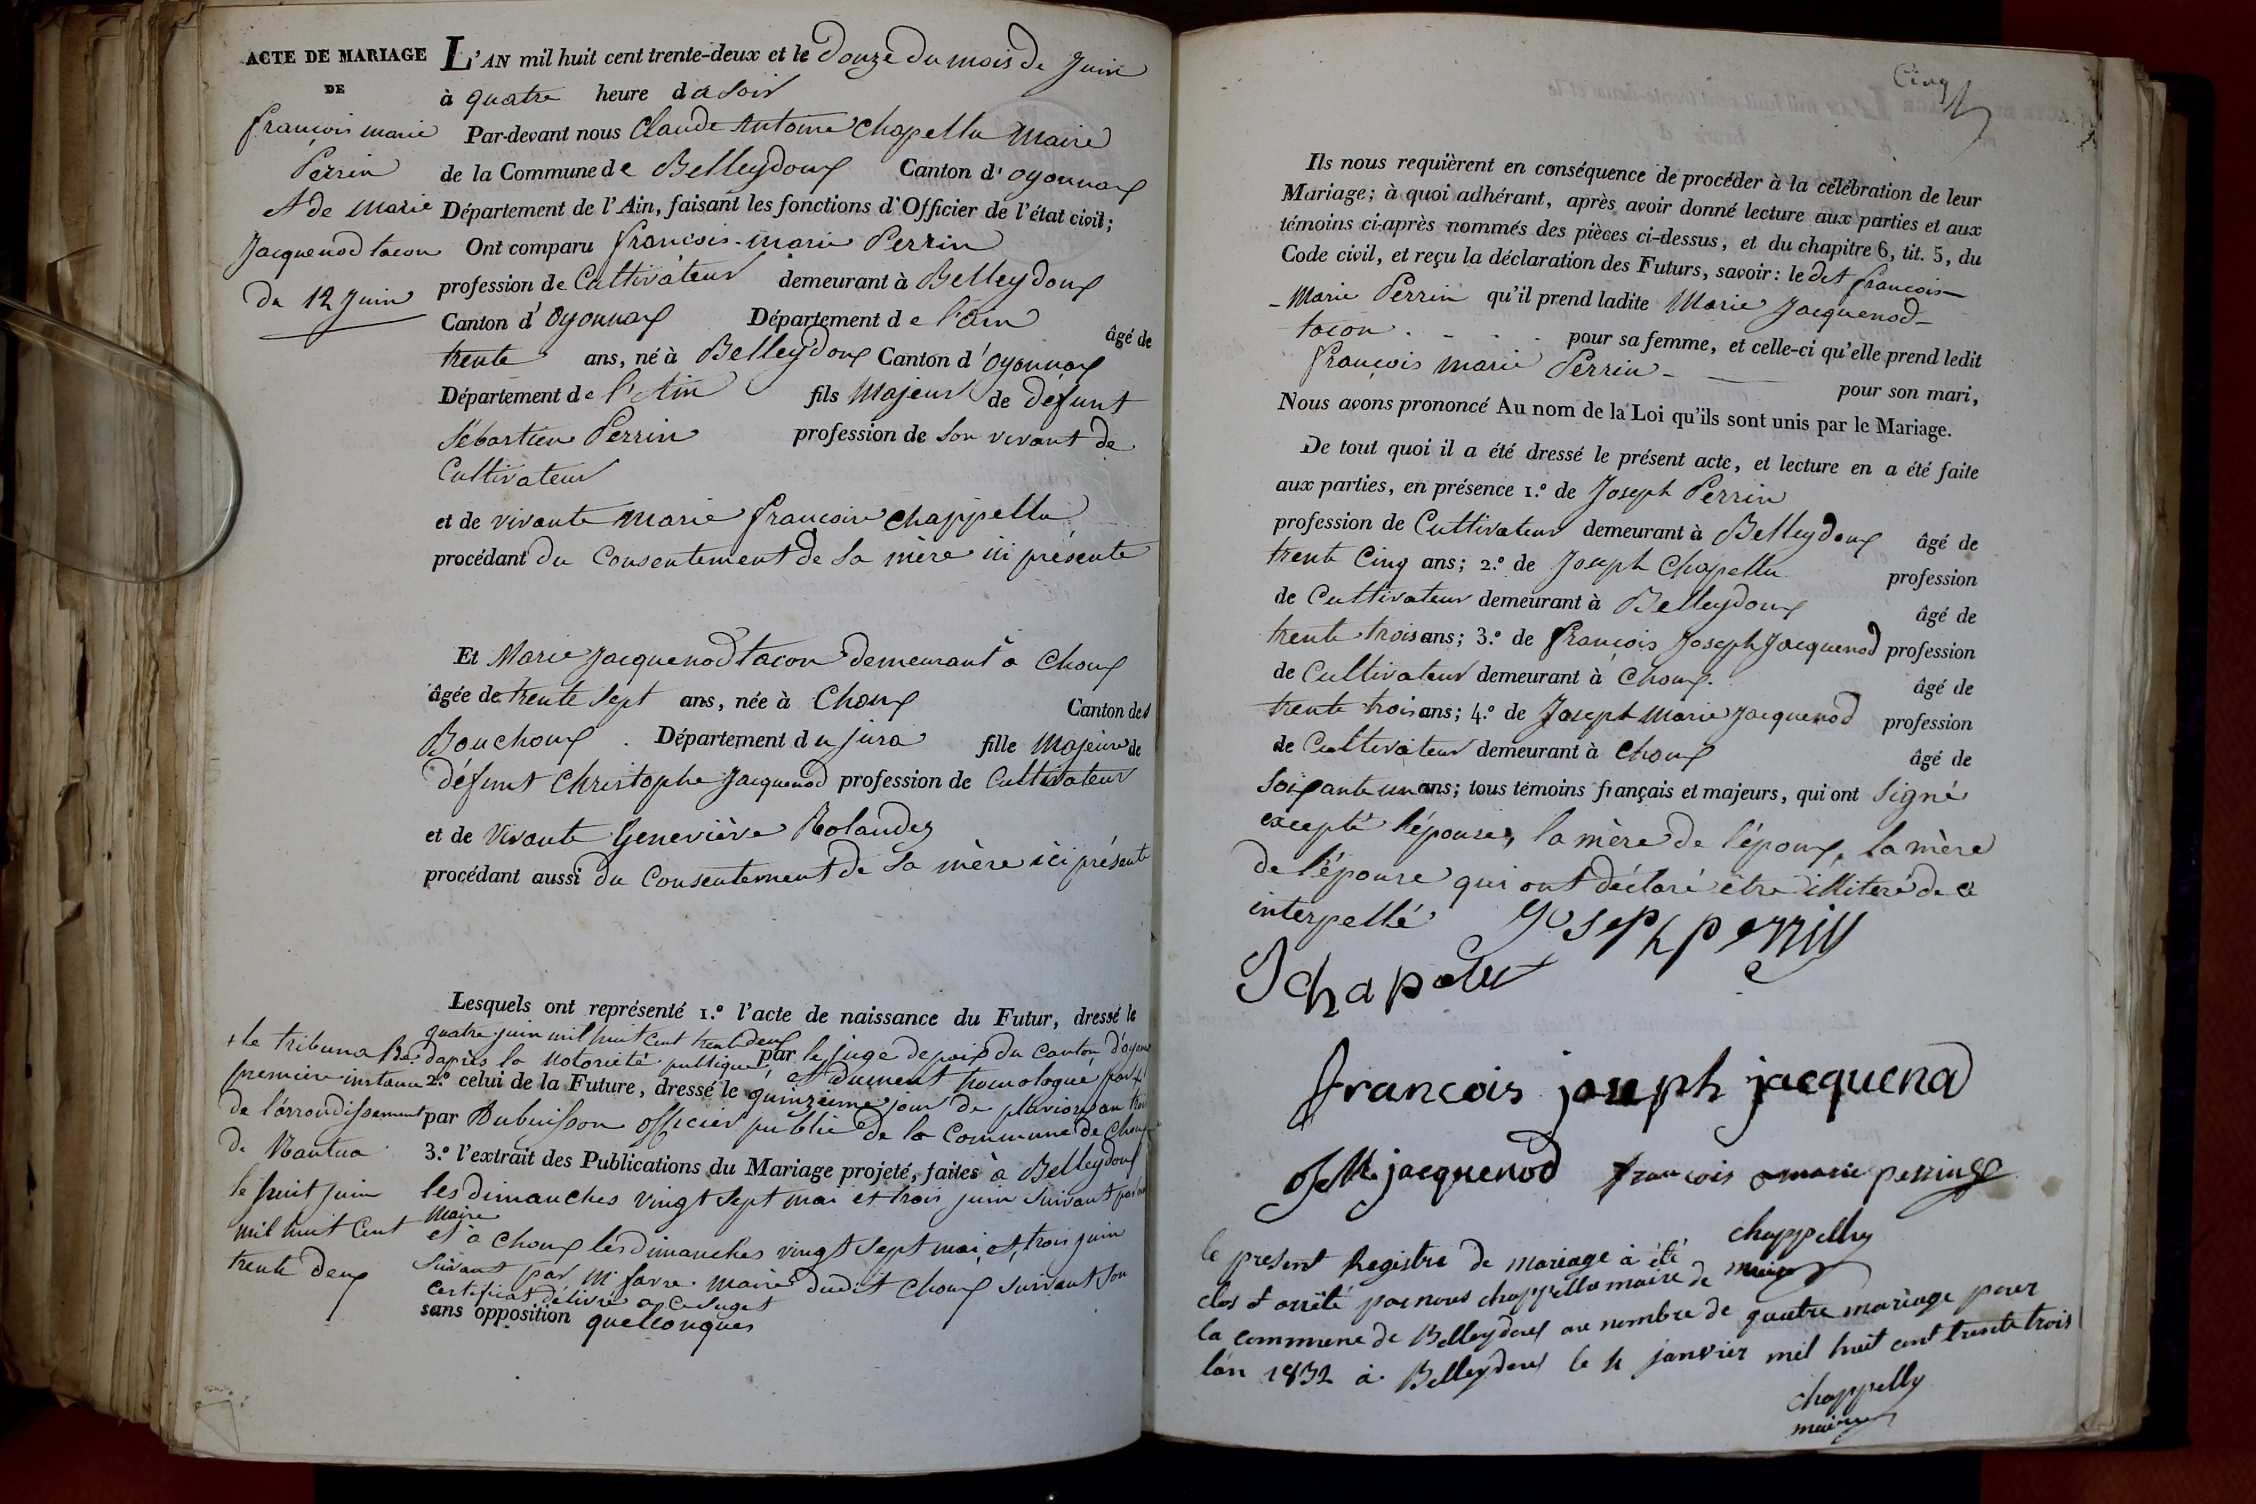 ACTE DE MARIAGE
DE
françois marie
Perrin
et de Marie
Jacquenod tacon
du 12 Juin
L'AN mil huit cent trente-deux et le Douze du mois de Juin
à quatre heure du Soir
Par-devant nous Claude Antoine Chapellu Maire
de la Commune de Belleydoux Canton d'oyonnax
Département de l'Ain, faisant les fonctions d'Officier de l'état civil;
Ont comparu françois-marie Perrin
profession de Cultivateur demeurant à Belleydoux
Canton d'Oyonnax Département de l'ain âgé de
trente ans, né à Belleydoux Canton d'Oyonnax
Département de l'Ain fils Majeur de défunt
Sébastien Perrin profession de son vivant de
Cultivateur
et de vivante Marie françoise Chappellu
procédant du Consentement de Sa mère ici présente
Et Marie Jacquenod tacon demeurant à Choux
âgée de trente Sept ans, née à Choux Canton des
Bouchoux Département du jura fille Majeure de
défunt Christophe Jacquenod profession de Cultivateur
et de Vivante Geneviève Rolandez
procédant aussi du Consentement de Sa mère ici présente
Lesquels ont représenté 1.º l'acte de naissance du Futur, dressé le
quatre juin mil huit cent trente deux
d'après la notoriété publique, par le juge de paix du canton d'oyonnax
et dument homologué par +
2.º celui de la Future, dressé le quinzieme jour de pluviose an trois
par Dubuisson officier public de la Commune de Choux
3.º l'extrait des Publications du Mariage projeté, faites à Belleydoux
les dimanches vingt sept mai et trois juin Suivant par nous
Maire
et à Choux les dimanches vingt sept mai et trois juin
Suivant par Mr favre maire dudit Choux suivant son
Certificat délivré a ce sujet
sans opposition quelconques
+ le tribunal de
première instance
de l'arrondissement
de Nantua
le huit juin
mil huit Cent
trente deux
Cinq
Ils nous requièrent en conséquence de procéder à la célébration de leur
Mariage; à quoi adhérant, après avoir donné lecture aux parties et aux
témoins ci-après nommés des pièces ci-dessus, et du chapitre 6, tit. 5, du
Code civil, et reçu la déclaration des Futurs, savoir: le dit francois-
-Marie Perrin qu'il prend ladite Marie Jacquenod-
tacon . - - . pour sa femme, et celle-ci qu'elle prend ledit
françois marie Perrin - - pour son mari,
Nous avons prononcé Au nom de la Loi qu'ils sont unis par le Mariage.
De tout quoi il a été dressé le présent acte, et lecture en a été faite
aux parties, en présence 1.º de Joseph Perrin
profession de Cultivateur demeurant à Belleydoux âgé de
trente Cinq ans; 2.º de Joseph Chapellu profession
de Cultivateur demeurant à Belleydoux âgé de
trente trois ans; 3.º de françois Joseph Jacquenod profession
de Cultivateur demeurant à Choux. âgé de
trente trois ans; 4.º de Joseph Marie Jacquenod profession
de Cultivateur demeurant à Choux âgé de
Soixante un ans; tous témoins français et majeurs, qui ont Signé
excepté l'épouse, la mère de l'époux, la mère
de l'épouse qui ont déclaré être illiteré de ce
interpellé
Joseph perrin
J chapelu
francois joseph jacquenod
J M jacquenod françois marie perrin
chappellu
maire
le present Registre de mariage à été
clos et arrêté par nous chappellu maire de
la commune de Belleydoux au nombre de quatre mariage pour
l'an 1832 à Belleydoux le 4 janvier mil huit cent trente trois
chappellu
maire